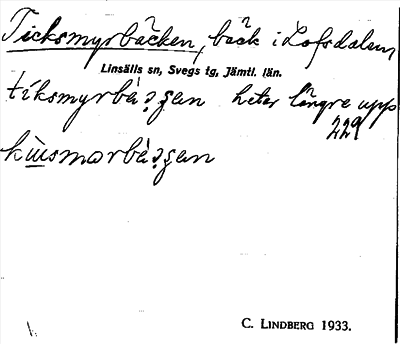 Ticksmyrbäcken, bäck i Lofsdalen,
Linsälls sn, Svegs tg, Jämtl. län.
tíksmyrbà?šen heter längre upp
229
kwismorbà?šen
C. LINDBERG 1933.